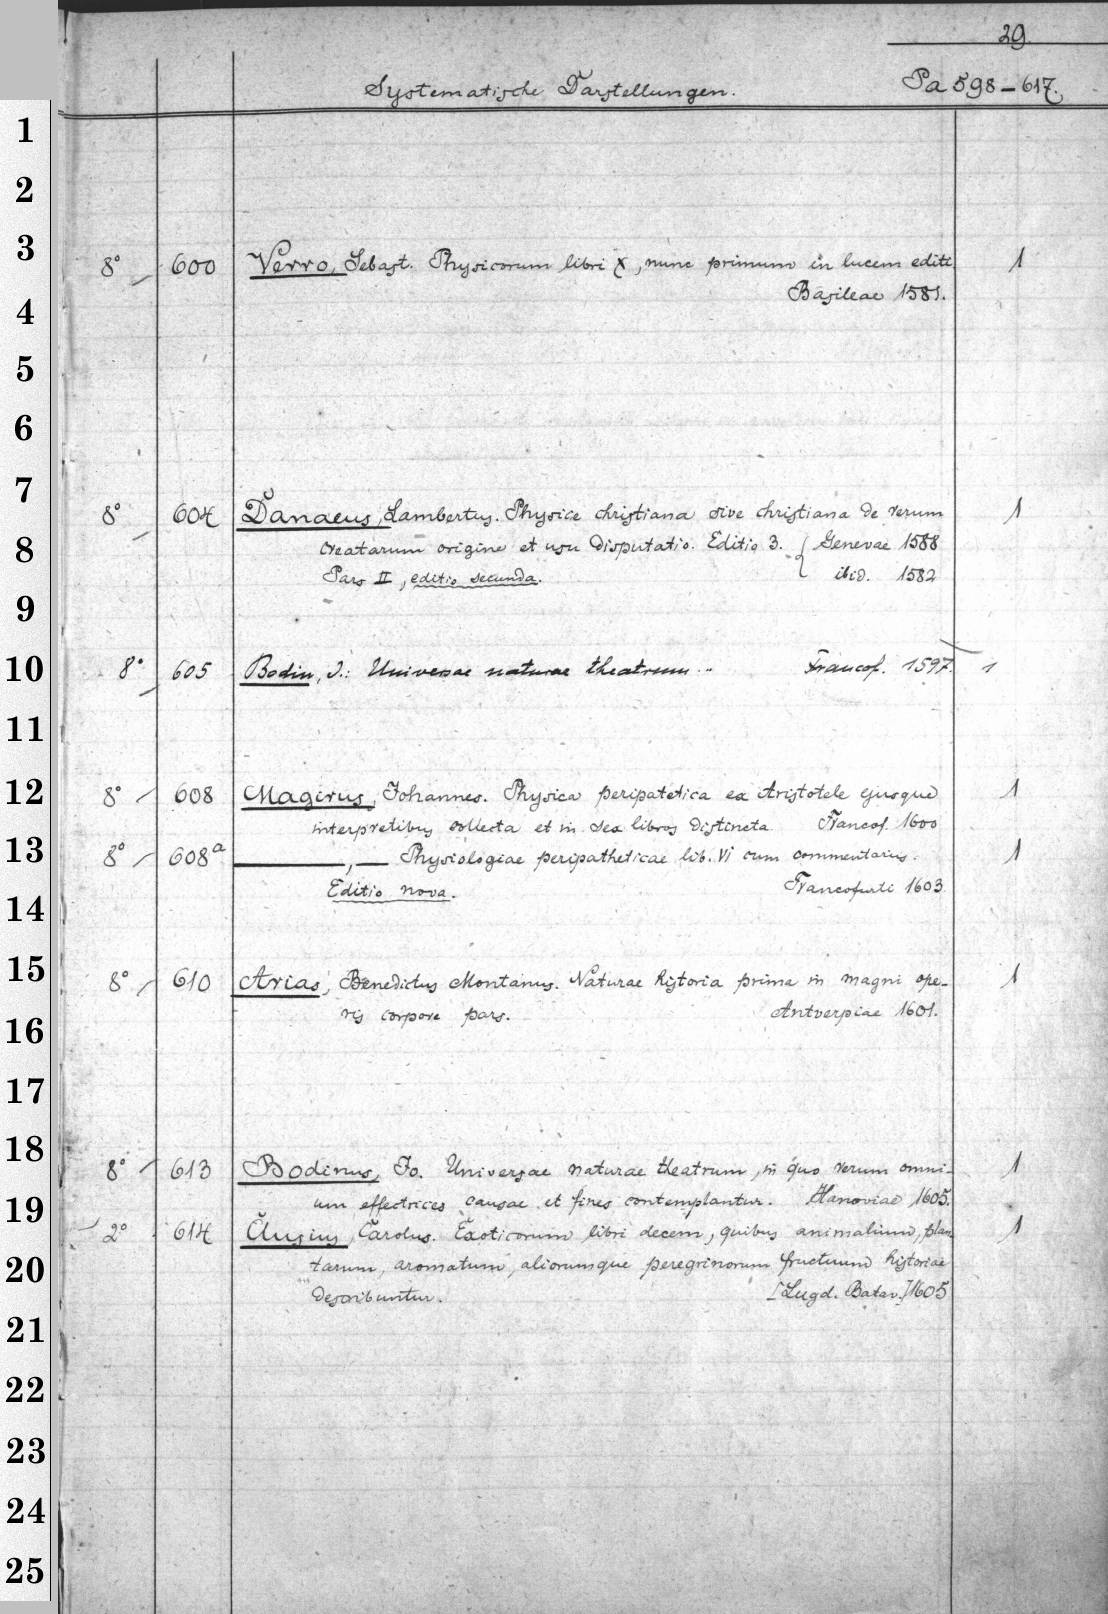 29.
Systematische Darstellungen. Pa 598-617.
1
2
3
8° 600 Verro, Sebast. Physicorum libri X, nunc primum in lucem editi 1
Basileae 1581.
4
5
6
7
8° 604 Danaeus, Lambertus. Physice christiana sive christiana de rerum 1
8
creatarum origine et usu disputatio. Editio 3. { Genevae 1588
Pars II, editio secunda. ibid. 1582
9
10
8° 605 Bodin, J.: Universae naturae theatrum .. Francof. 1597. 1
11
12
8° 608 Magirus, Johannes. Physica peripatetica ex Aristotele ejusque 1
interpretibus collecta et in sex libros distincta Francof. 1600
13
8° 608a ——, — Physiologiae peripatheticae lib. VI cum commentariis. 1
Editio nova. Francofurti 1603
14
15
8° 610 Arias, Benedictus Montanus. Naturae historia prima in magni ope- 1
ris corpore pars. Antverpiae 1601.
16
17
18
8° 613 Bodinus, Jo. Universae naturae theatrum, in quo rerum omni- 1
um effectrices causae et fines contemplantur. Hanoviae 1605.
19
2° 614 Clusius, Carolus. Exoticorum libri decem, quibus animalium, plan 1
20
tarum, aromatum, aliorumque peregrinorum fructuum historiae
describuntur. [Lugd. Batav.] 1605
21
22
23
24
25